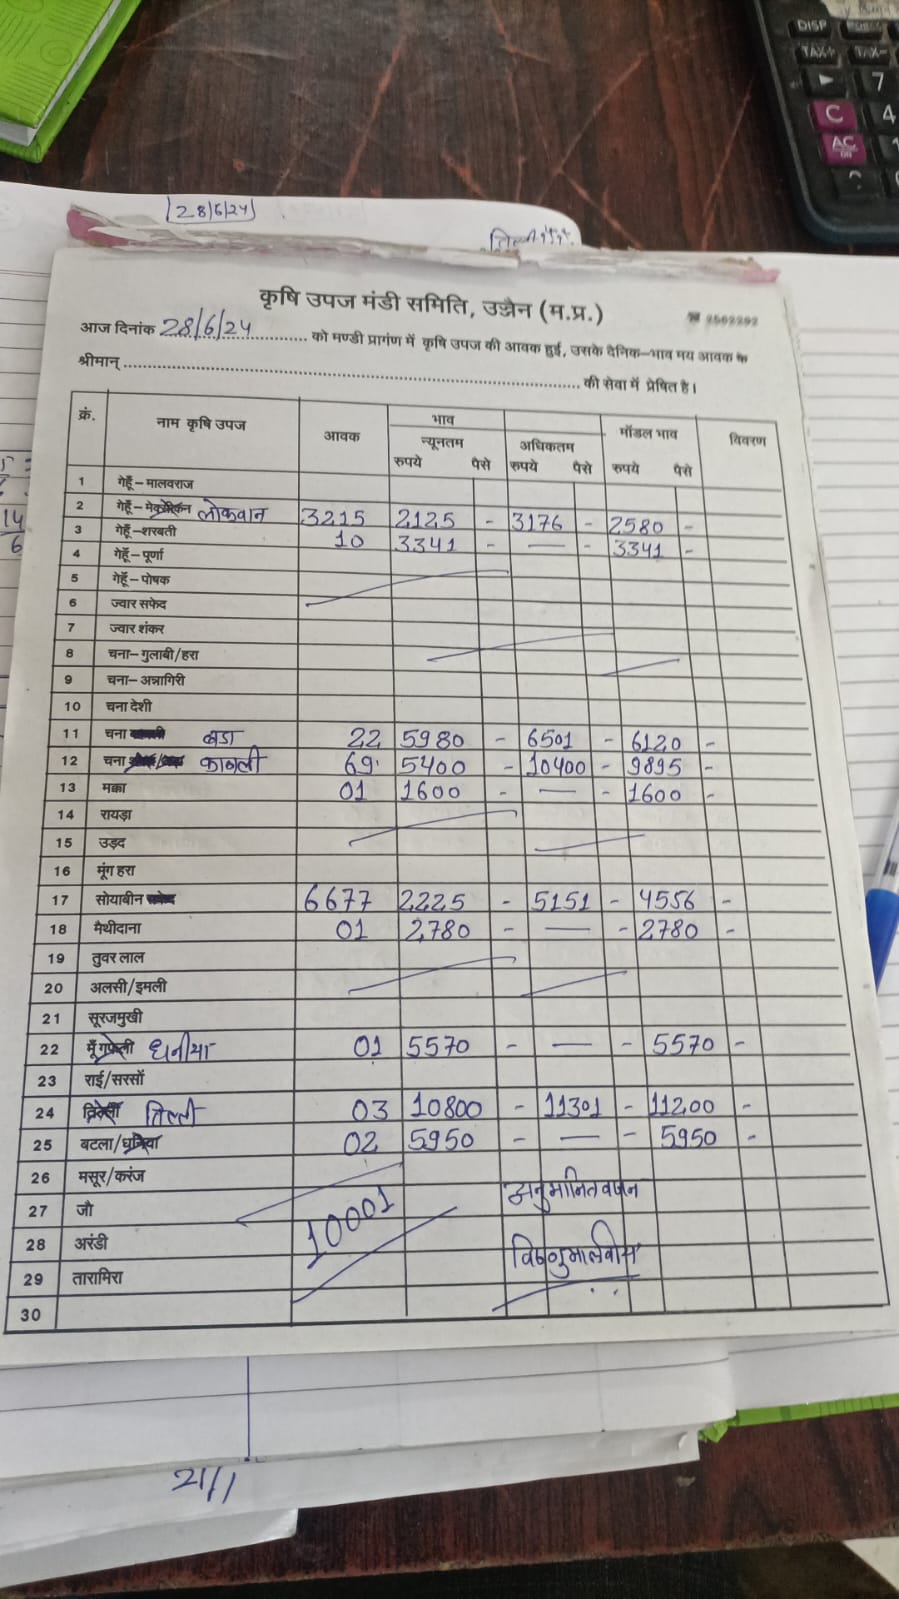 28/6/24
कृषि उपज मंडी समिति, उज्जैन (म.प्र.)
☎ 2562292
आज दिनांक 28/6/24 को मण्डी प्रागंण में कृषि उपज की आवक हुई, उसके दैनिक-भाव मय आवक के
श्रीमान् की सेवा में प्रेषित है।
क्रं. नाम कृषि उपज आवक भाव न्यूनतम रुपये पैसे अधिकतम रुपये पैसे मॉडल भाव रुपये पैसे विवरण
1 गेहूँ-मालवराज
2 गेहूँ- लोकवान 3215 2125 - 3176 - 2580 -
3 गेहूँ-शरबती 10 3341 - — - 3341 -
4 गेहूँ-पूर्णा
5 गेहूँ-पोषक
6 ज्वार सफेद
7 ज्वार शंकर
8 चना-गुलाबी/हरा
9 चना-अन्नागिरी
10 चना देशी
11 चना बडा 22 5980 - 6501 - 6120 -
12 चना काबली 69 5400 - 10400 - 9895 -
13 मक्का 01 1600 - — - 1600 -
14 रायड़ा
15 उड़द
16 मूंग हरा
17 सोयाबीन 6677 2225 - 5151 - 4556 -
18 मैथीदाना 01 2780 - — - 2780 -
19 तुवर लाल
20 अलसी/इमली
21 सूरजमुखी
22 मूँगफली धनीया 01 5570 - — - 5570 -
23 राई/सरसों
24 तिल्ली 03 10800 - 11301 - 11200 -
25 बटला/धनिया 02 5950 - — - 5950 -
26 मसूर/करंज
27 जौ
28 अरंडी
29 तारामिरा
30
10001
अनुमानित वजन
21/1
DISP
TAX+ TAX-
7
C 4
AC
ON
14
6